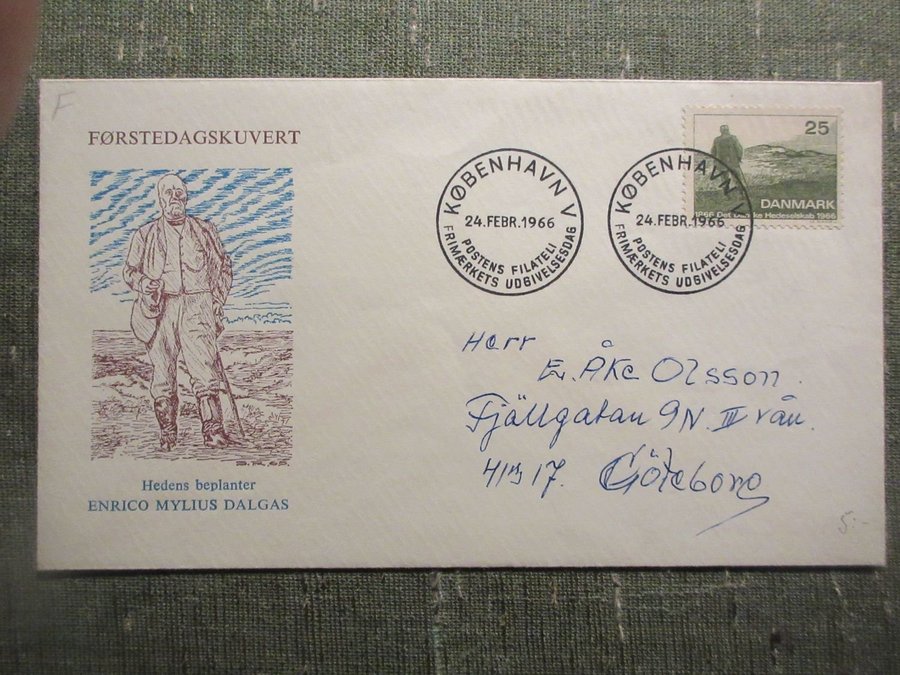 F
FØRSTEDAGSKUVERT
Hedens beplanter
ENRICO MYLIUS DALGAS
KØBENHAVN V
24.FEBR.1966
POSTENS FILATELI
FRIMÆRKETS UDGIVELSESDAG
KØBENHAVN V
24.FEBR.1966
POSTENS FILATELI
FRIMÆRKETS UDGIVELSESDAG
25
DANMARK
1966 Det Danske Hedeselskab 1966
Herr
E. Åke Olsson.
Fjällgatan 9N. III vån.
413 17. Göteborg
5:-